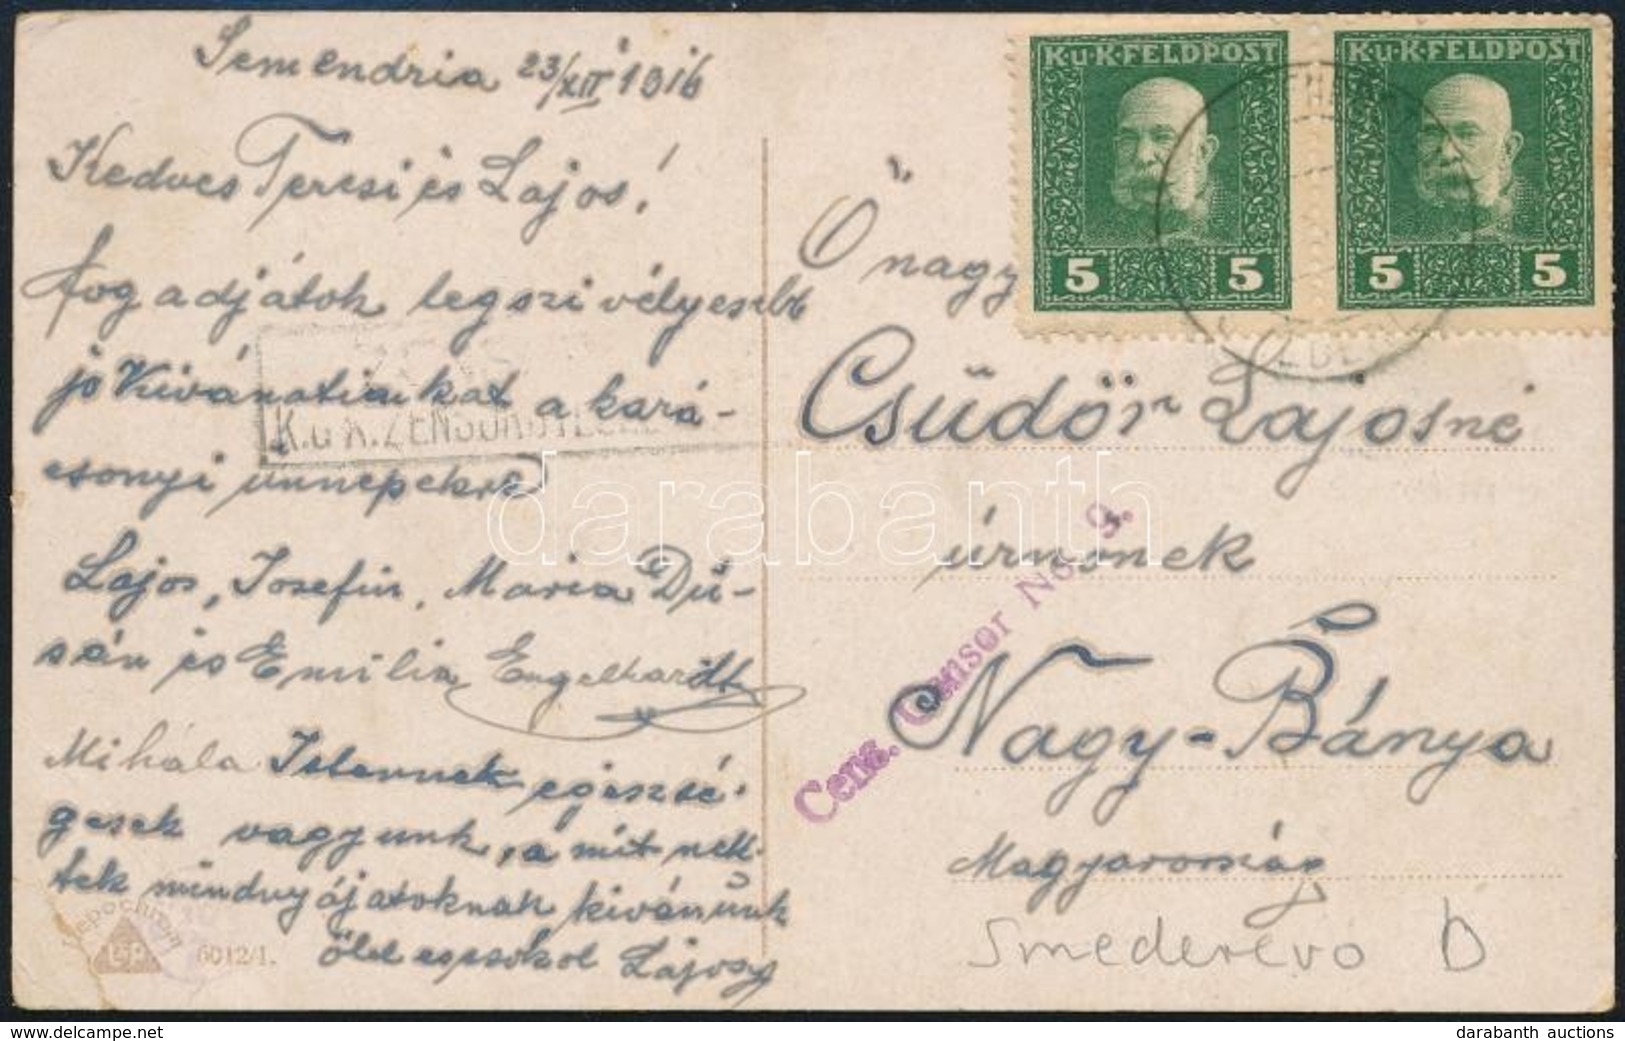 Semendria 23/XII 1916
Kedves Teresi és Lajos!
fogadjátok legszivélyesebb
jó Kivánatainkat a kará-
csonyi ünnepekre
Lajos, Josefin, Maria Du-
sán és Emilia Engelhardt
Mihála Istennek egészsé-
gesek vagyunk, a mit nek-
tek mindnyájatoknak kivánunk
ölel csókol Lajos
K.u.K. ZENSUR
K.u.K. FELDPOST
5 5
K.u.K. FELDPOST
5 5
Ő nagy
Csüdör Lajosné
úrnőnek
Nagy-Bánya
Magyarország
Smederevo b
Cens. Censor No. 9.
LP
6012/I.
darabanth
darabanth auctions
www.delcampe.net